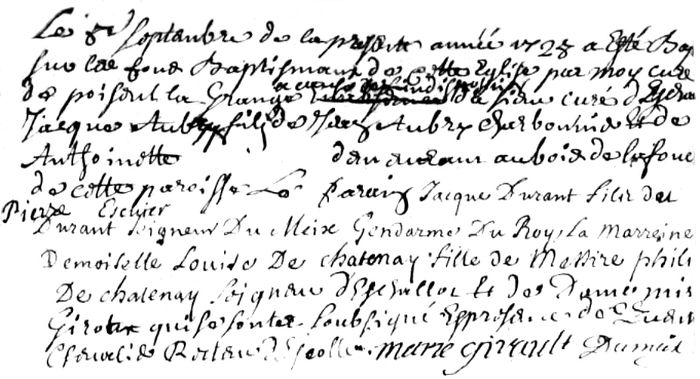 Le 8e Septambre de la presente année 1728 a Esté Bap
sur les fons Baptismaux de cette Eglise par moy curé
de poisent la Grange a cause de l'indisposition du sieur curé d'
Jacque Aubry fils de Aubry charbonnier Et de
Anthoinette demeurant au bois de la
de cette paroisse Le Parain Jacque Durant fils de
Pierre Escuier
Durant Seigneur Du Meix Gendarme Du Roy La Marreine
Demoiselle Louise De chatenay fille de Messire phili
De chatenay Seigneur Et de Dame
Girote qui se sont Soubsigné En presence de
Chevalier marie girault Dumeix